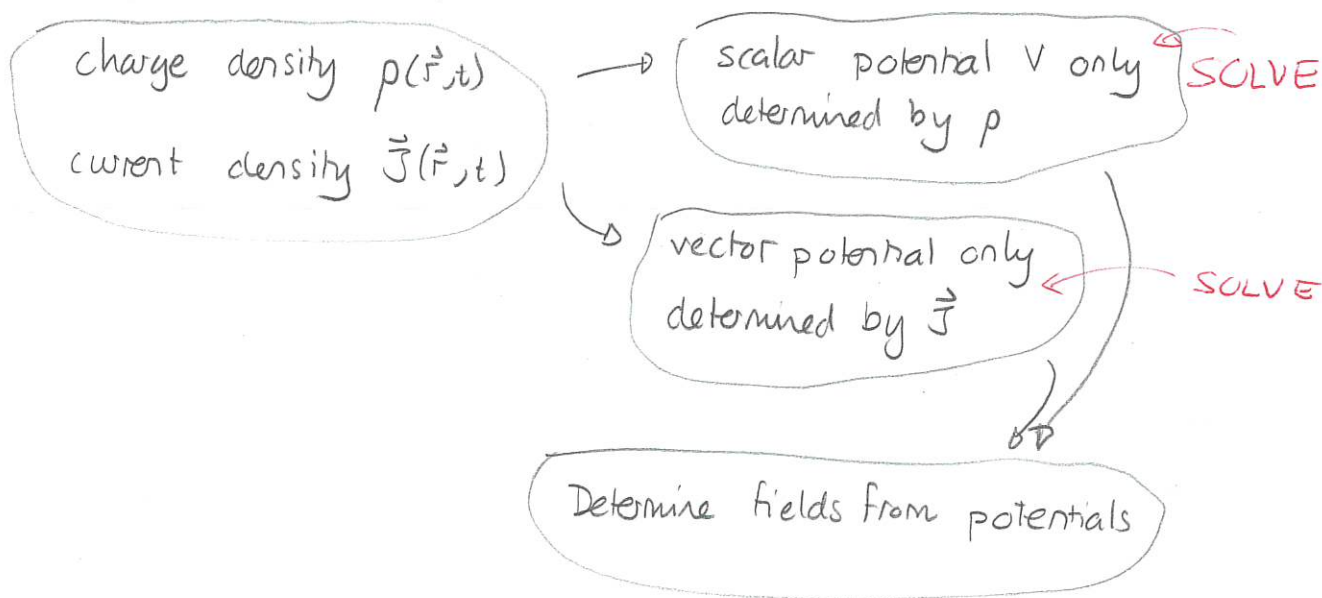 charge density ρ(r⃗,t)
current density J⃗(r⃗,t)
scalar potential V only
determined by ρ
SOLVE
vector potential only
determined by J⃗
SOLVE
Determine fields from potentials